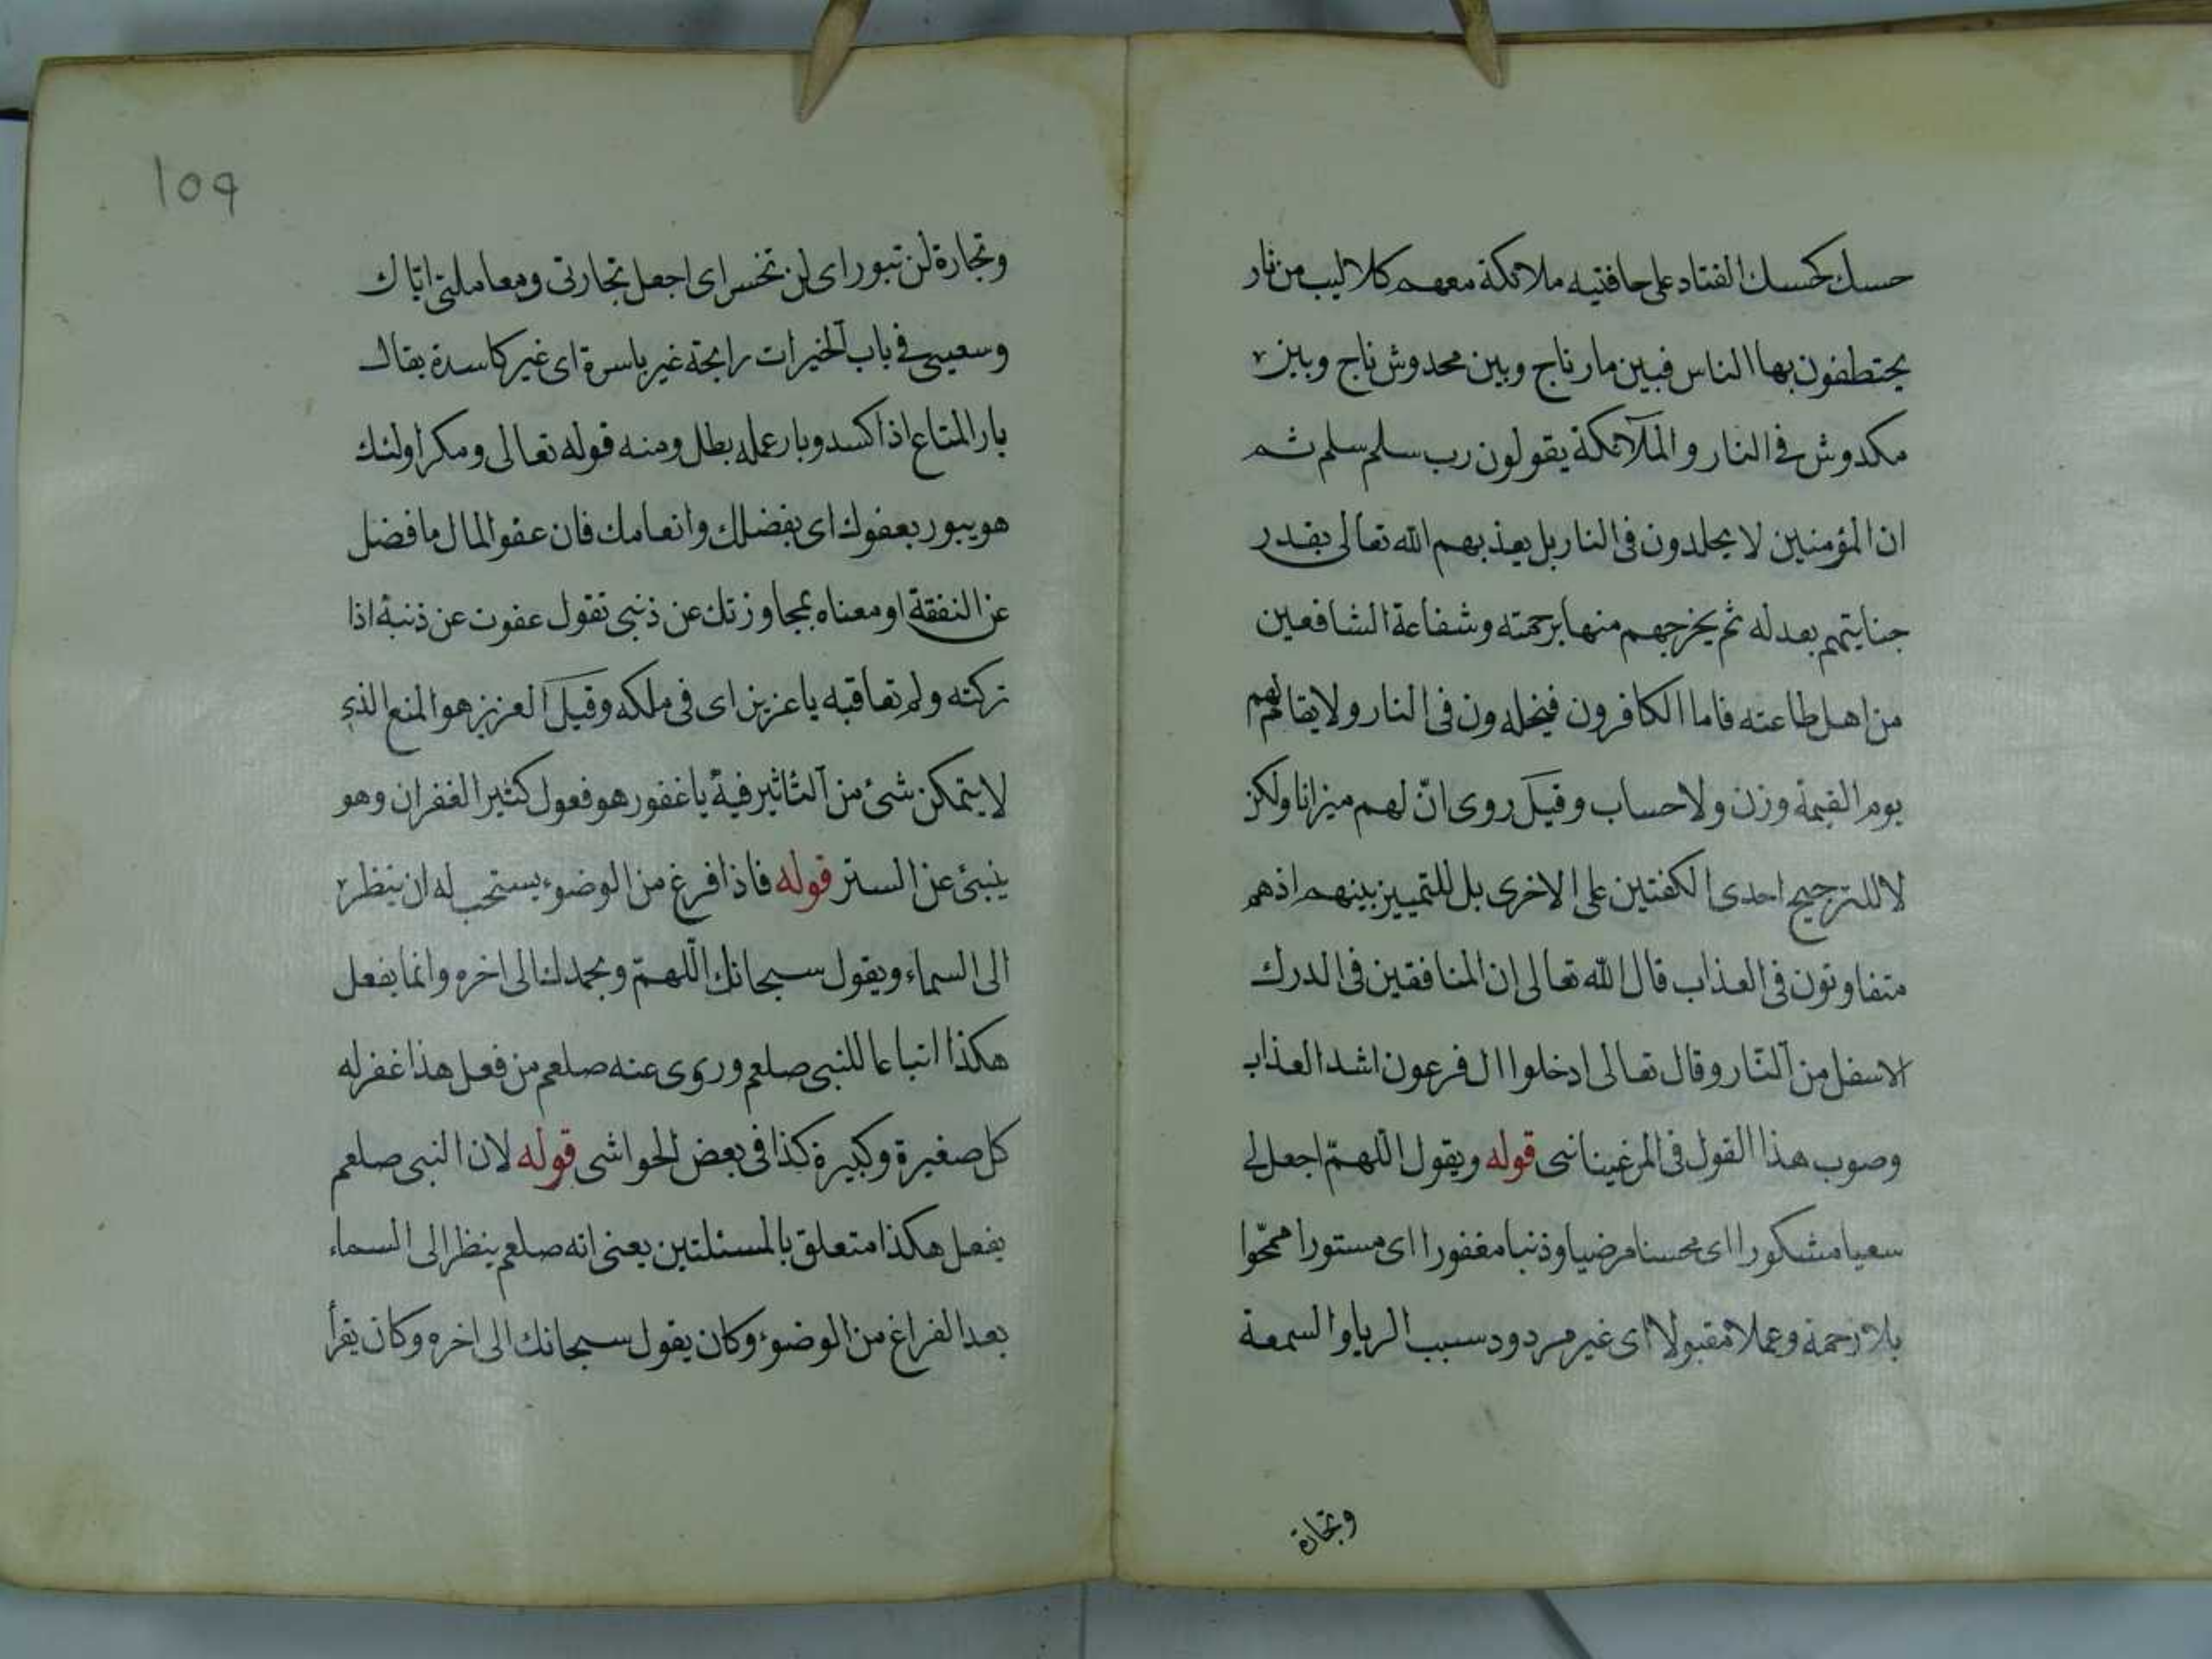 حسك كحسك القتاد على حافتيه ملائكة معهم كلاليب من نار
يختطفون بها الناس فبين مار ناج وبين مخدوش ناج وبين
مكدوش في النار والملآئكة يقولون رب سلم سلم ثم
ان المؤمنين لا يخلدون في النار بل يعذبهم الله تعالى بقدر
جنايتهم بعدله ثم يخرجهم منها برحمته وشفاعة الشافعين
من اهل طاعته فاما الكافرون فيخلدون في النار ولا يقام لهم
يوم القيمة وزن ولا حساب وقيل روى انّ لهم ميزانا ولكن
لا للترجيح احدى الكفتين على الاخرى بل للتمييز بينهم اذ هم
متفاوتون في العذاب قال الله تعالى ان المنافقين في الدرك
الاسفل من النّار وقال تعالى ادخلوا ال فرعون اشد العذاب
وصوب هذا القول في المرغينانى قوله ويقول اللّهمّ اجعل لى
سعيا مشكورا اى محسنا مرضيا وذنبا مغفورا اى مستورا ممحّوا
بلا زحمة وعملا مقبولا اى غير مردود بسبب الريا والسمعة
وتجارة
١٥٩
وتجارة لن تبور اى لن تخسر اى اجعل تجارتى ومعاملتى اياك
وسعيى في باب الخيرات رابحة غير باسرة اى غير كاسدة يقال
بار المتاع اذا كسد وبار عمله بطل ومنه قوله تعالى ومكر اولئك
هو يبور بعفوك اى بفضلك وانعامك فان عفو المال ما فضل
عن النفقة او معناه بمجاوزتك عن ذنبى تقول عفوت عن ذنبه اذا
تركته ولم تعاقبه يا عزيز اى في ملكه وقيل العزيز هو المنع الذى
لا يتمكن شئ من التاثير فيه يا غفور هو فعول كثير الغفران وهو
ينبئ عن الستر قوله فاذا فرغ من الوضوء يستحب له ان ينظر
الى السماء ويقول سبحانك اللّهمّ وبحمدك الى اخره وانما يفعل
هكذا اتباعا للنبى صلعم وروى عنه صلعم من فعل هذا غفر له
كل صغيرة وكبيرة كذا في بعض الحواشى قوله لان النبى صلعم
يفعل هكذا متعلق بالمسئلتين يعنى انه صلعم ينظر الى السماء
بعد الفراغ من الوضوء وكان يقول سبحانك الى اخره وكان يقرأ